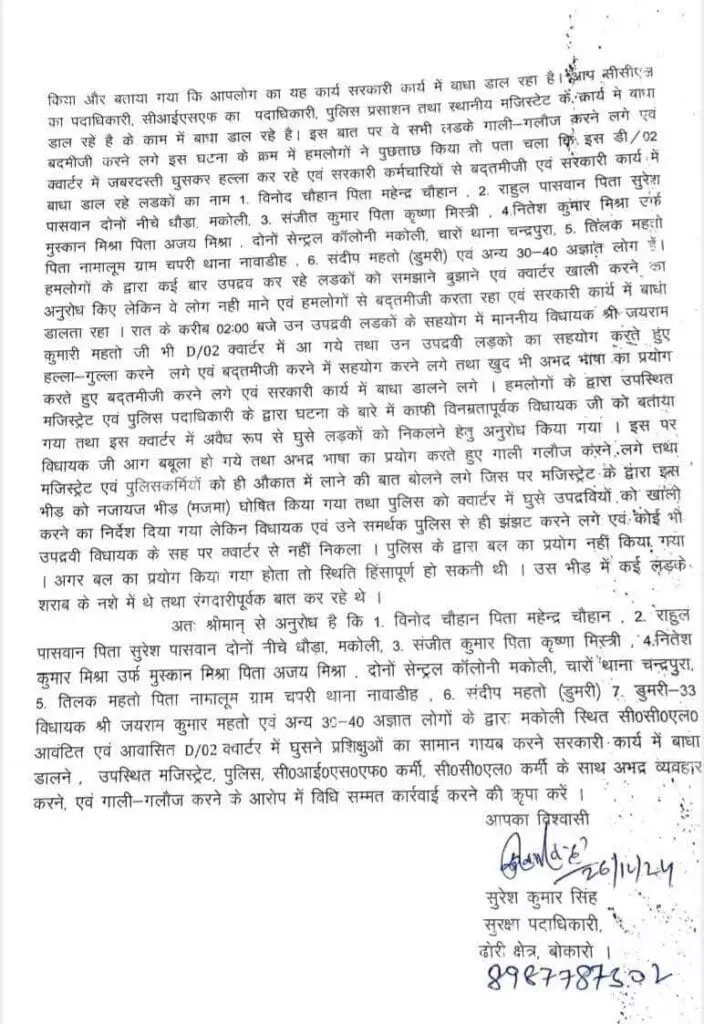 किया और बताया गया कि आपलोग का यह कार्य सरकारी कार्य में बाधा डाल रहा है। आप सीसीएल
का पदाधिकारी, सीआईएसएफ का पदाधिकारी, पुलिस प्रशासन तथा स्थानीय मजिस्टेट के कार्य मे बाधा
डाल रहें है के काम में बाधा डाल रहे है। इस बात पर वे सभी लडके गाली–गलौज करने लगे एवं
बदमीजी करने लगे इस घटना के क्रम में हमलोगों ने पुछताछ किया तो पता चला कि इस डी/02
क्वार्टर में जबरदस्ती घुसकर हल्ला कर रहे एवं सरकारी कर्मचारियों से बद्तमीजी एवं सरकारी कार्य में
बाधा डाल रहे लडकों का नाम 1. विनोद चौहान पिता महेन्द्र चौहान , 2. राहुल पासवान पिता सुरेश
पासवान दोनों नीचे धौड़ा, मकोली, 3. संजीत कुमार पिता कृष्णा मिस्त्री , 4.नितेश कुमार मिश्रा उर्फ
मुस्कान मिश्रा पिता अजय मिश्रा , दोनों सेन्ट्रल कॉलोनी मकोली, चारों थाना चन्द्रपुरा, 5. तिलक महतो
पिता नामालूम ग्राम चपरी थाना नावाडीह , 6. संदीप महतो (डुमरी) एवं अन्य 30–40 अज्ञात लोग हैं।
हमलोगों के द्वारा कई बार उपद्रव कर रहे लडकों को समझाने बुझाने एवं क्वार्टर खाली करने का
अनुरोध किए लेकिन ये लोग नही माने एवं हमलोगों से बद्तमीजी करता रहा एवं सरकारी कार्य में बाधा
डालता रहा । रात के करीब 02:00 बजे उन उपद्रवी लडकों के सहयोग में माननीय विधायक श्री जयराम
कुमारी महतो जी भी D/02 क्वार्टर में आ गये तथा उन उपद्रवी लडको का सहयोग करते हुए
हल्ला–गुल्ला करने लगे एवं बद्तमीजी करने में सहयोग करने लगे तथा खुद भी अभद्र भाषा का प्रयोग
करते हुए बदतमीजी करने लगे एवं सरकारी कार्य में बाधा डालने लगे । हमलोगों के द्वारा उपस्थित
मजिस्ट्रेट एवं पुलिस पदाधिकारी के द्वारा घटना के बारे में काफी विनम्रतापूर्वक विधायक जी को बताया
गया तथा इस क्वार्टर में अवैध रूप से घुसे लड़कों को निकलने हेतु अनुरोध किया गया । इस पर
विधायक जी आग बबूला हो गये तथा अभद्र भाषा का प्रयोग करते हुए गाली गलौज करने लगे तथा
मजिस्ट्रेट एवं पुलिसकर्मियों को ही औकात में लाने की बात बोलने लगे जिस पर मजिस्ट्रेट के द्वारा इस
भीड़ को नजायज भीड़ (मजमा) घोषित किया गया तथा पुलिस को क्वार्टर में घुसे उपद्रवियों को खाली
करने का निर्देश दिया गया लेकिन विधायक एवं उने समर्थक पुलिस से ही झंझट करने लगे एवं कोई भी
उपद्रवी विधायक के सह पर क्वार्टर से नहीं निकला । पुलिस के द्वारा बल का प्रयोग नहीं किया गया
। अगर बल का प्रयोग किया गया होता तो स्थिति हिंसापूर्ण हो सकती थी । उस भीड़ में कई लड़के
शराब के नशे में थे तथा रंगदारीपूर्वक बात कर रहे थे ।
अतः श्रीमान् से अनुरोध है कि 1. विनोद चौहान पिता महेन्द्र चौहान , 2. राहुल
पासवान पिता सुरेश पासवान दोनों नीचे धौड़ा, मकोली, 3. संजीत कुमार पिता कृष्णा मिस्त्री , 4.नितेश
कुमार मिश्रा उर्फ मुस्कान मिश्रा पिता अजय मिश्रा , दोनों सेन्ट्रल कॉलोनी मकोली, चारों थाना चन्द्रपुरा,
5. तिलक महतो पिता नामालूम ग्राम चपरी थाना नावाडीह , 6. संदीप महतो (डुमरी) 7. डुमरी–33
विधायक श्री जयराम कुमार महतो एवं अन्य 30–40 अज्ञात लोगों के द्वारा मकोली स्थित सी0सी0एल0
आवंटित एवं आवासित D/02 क्वार्टर में घुसने प्रशिक्षुओं का सामान गायब करने सरकारी कार्य में बाधा
डालने , उपस्थित मजिस्ट्रेट, पुलिस, सी0आई0एस0एफ0 कर्मी, सी0सी0एल0 कर्मी के साथ अभद्र व्यवहार
करने, एवं गाली–गलौज करने के आरोप में विधि सम्मत कार्रवाई करने की कृपा करें ।
आपका विश्वासी
26/12/24
सुरेश कुमार सिंह
सुरक्षा पदाधिकारी,
ढोरी क्षेत्र, बोकारो ।
8987787302